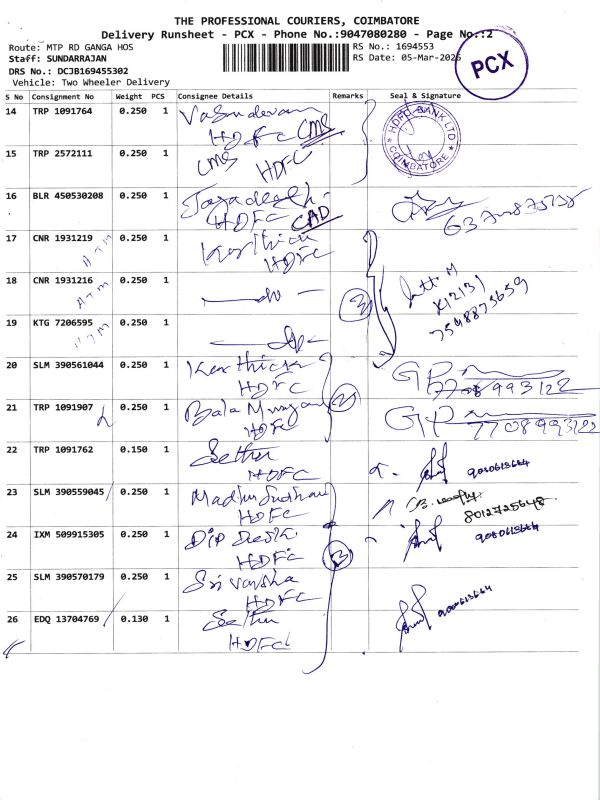 THE PROFESSIONAL COURIERS, COIMBATORE
Delivery Runsheet - PCX - Phone No.:9047080280 - Page No.:2
Route: MTP RD GANGA HOS
RS No.: 1694553
Staff: SUNDARRAJAN
RS Date: 05-Mar-2026
DRS No.: DCJB169455302
Vehicle: Two Wheeler Delivery
PCX
S No Consignment No Weight PCS Consignee Details Remarks Seal & Signature
14 TRP 1091764 0.250 1 Vasudevan
HDFC CMS
HDFC BANK LTD
COIMBATORE
15 TRP 2572111 0.250 1 CMS HDFC
16 BLR 450530208 0.250 1 Jagadeesh
HDFC CAD
17 CNR 1931219 0.250 1 Karthick
ATM HDFC
18 CNR 1931216 0.250 1 - do -
ATM
3
X12131
7548875659
19 KTG 7206595 0.250 1 - do -
ATM
20 SLM 390561044 0.250 1 Karthick
HDFC
GP 7708993122
21 TRP 1091907 0.250 1 Bala Murugan
HDFC
2
GP 7708993122
22 TRP 1091762 0.150 1 Sethu
HDFC
23 SLM 390559045 0.250 1 Madhu Sudhan
HDFC
8012725648
24 IXM 509915305 0.250 1 Dip Deesh
HDFC
3
25 SLM 390570179 0.250 1 Sri varsha
HDFC
26 EDQ 13704769 0.130 1 Sethu
HDFC